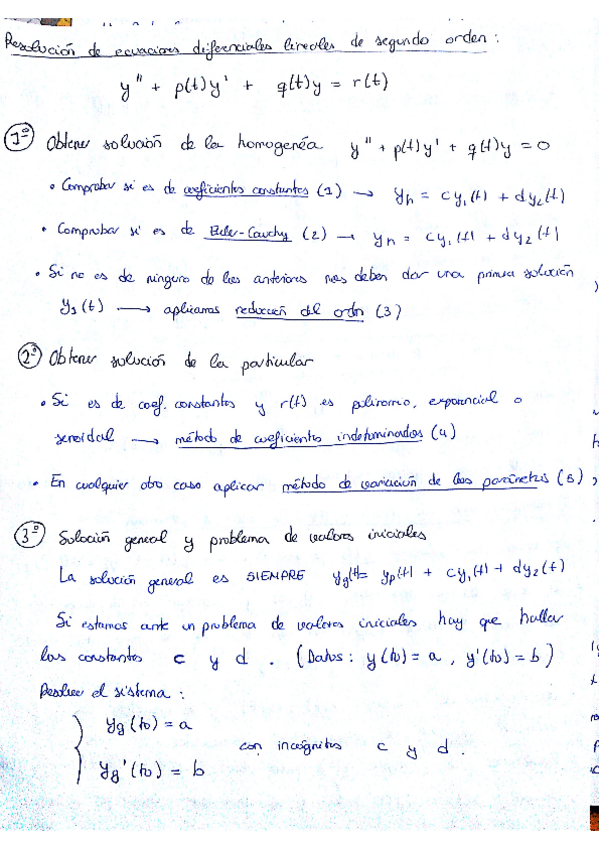 Resolución de ecuaciones diferenciales lineales de segundo orden:
y'' + p(t)y' + q(t)y = r(t)
1º Obtener solución de la homogenéa y'' + p(t)y' + q(t)y = 0
• Comprobar si es de coeficientes constantes (1) → yh = cy1(t) + dy2(t)
• Comprobar si es de Euler-Cauchy (2) → yh = cy1(t) + dy2(t)
• Si no es de ninguno de los anteriores nos deben dar una primera solución
y1(t) → aplicamos reducción del orden (3)
2º Obtener solución de la particular
• Si es de coef. constantes y r(t) es polinomio, exponencial o
senoidal → método de coeficientes indeterminados (4)
• En cualquier otro caso aplicar método de variación de los parámetros (5)
3º Solución general y problema de valores iniciales
La solución general es SIEMPRE yg(t) = yp(t) + cy1(t) + dy2(t)
Si estamos ante un problema de valores iniciales hay que hallar
las constantes c y d. (Datos: y(to) = a, y'(to) = b)
Resolver el sistema:
yg(to) = a
con incógnitas c y d.
yg'(to) = b